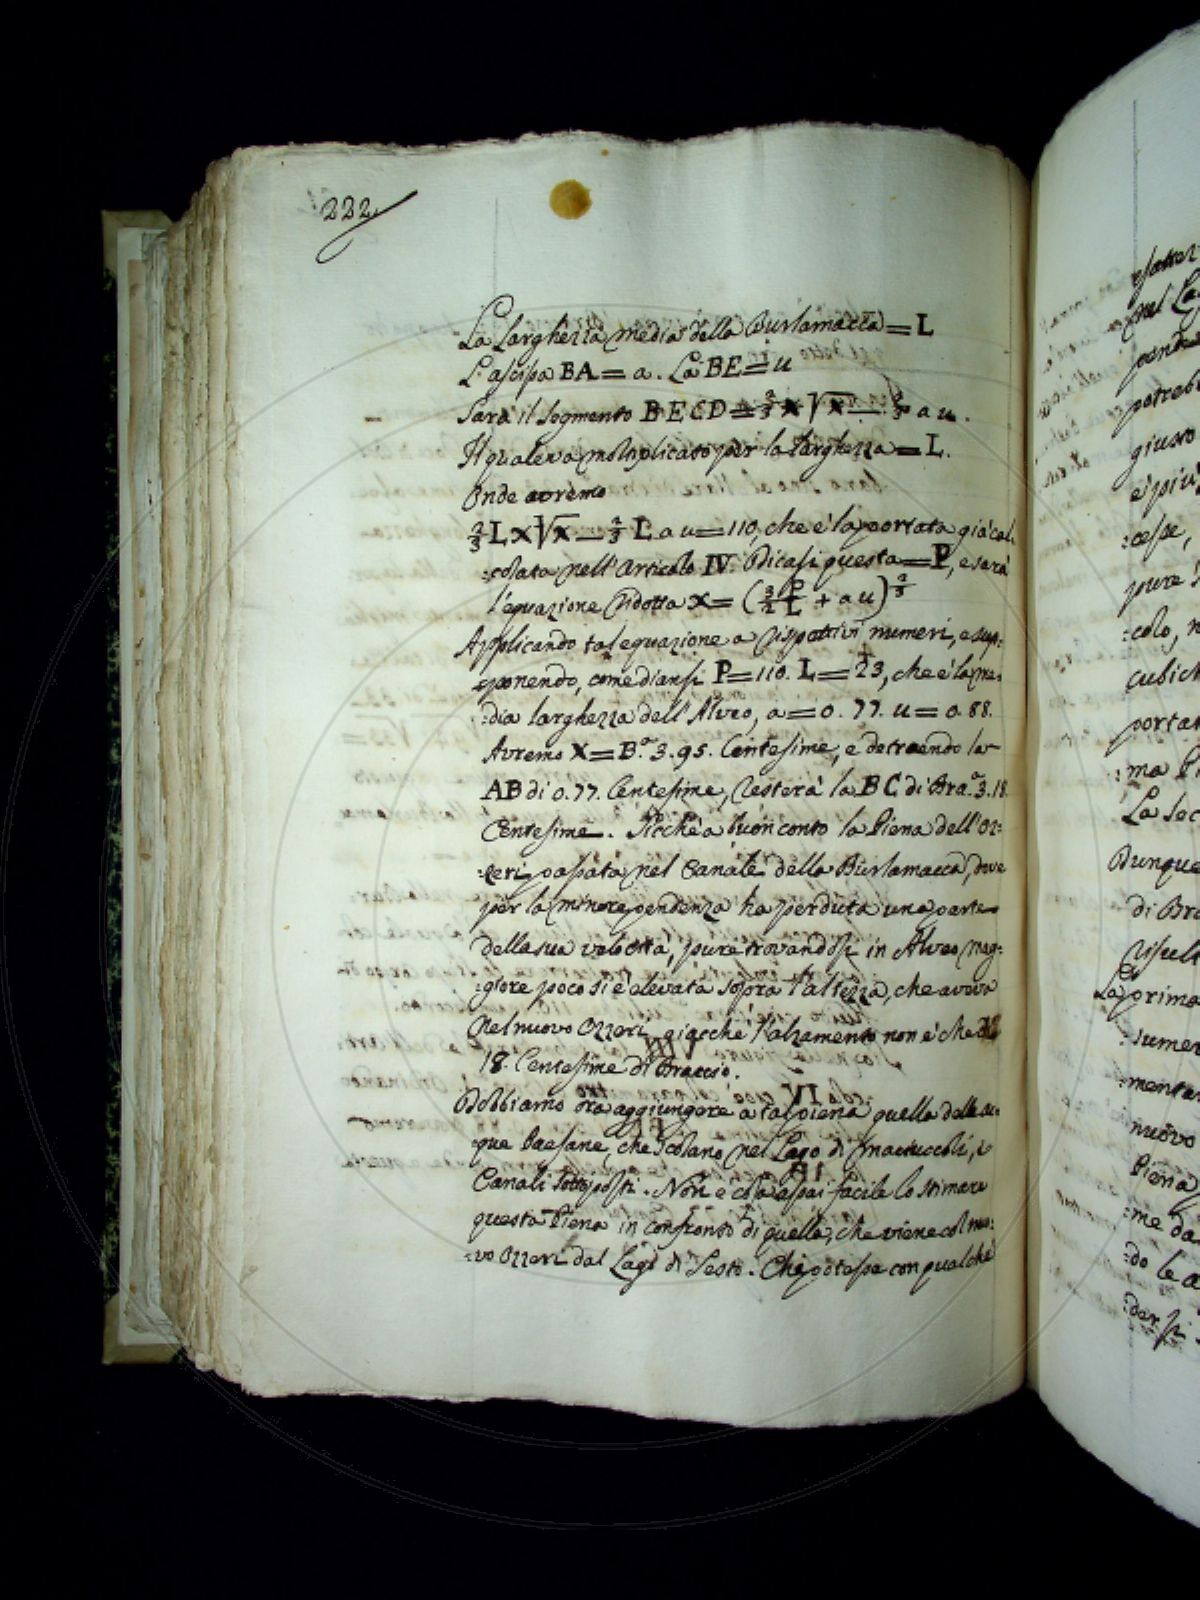 222.
La larghezza media della Burlamacca = L
L'ascissa BA = a. La BE = u
Sarà il segmento BECD = 2/3 x √x — 2/3 a u.
Il quale va moltiplicato per la larghezza = L.
Onde avremo
2/3 L x √x — 2/3 L a u = 110, che è la portata già cal:
:colata nell'Articolo IV. Dicasi questa = P, e sarà
l'equazione ridotta x = (3/2 P/L + a u)^2/3
Applicando tal equazione a rispettivi numeri, e sup:
:ponendo, come dianzi P = 110. L = 23, che è la me:
:dia larghezza dell'Alveo, a = 0.77. u = 0.88.
Avremo X = B.a 3.95. Centesime, e detraendo la
AB di 0.77. Centesime, resterà la BC di Bra.a 3.18
Centesime. Sicchè a buon conto la Piena dell'Oz:
:zeri passata nel Canale della Burlamacca, dove
per la minore pendenza ha perduta una parte
della sua velocità, pure trovandosi in Alveo mag:
:giore poco si è elevata sopra l'altezza, che aveva
nel nuovo Ozzeri, giacchè l'alzamento non è che di
18. Centesime di Braccio.
Dobbiamo ora aggiungere a tal piena quella delle ac:
:que Paesane, che scolano nel Lago di Maciuccoli, e
Canali sottoposti. Non è cosa assai facile lo stimare
questa Piena in confronto di quella, che viene col nuo:
:vo Ozzeri dal Lago di Sesto. Chi potesse con qualche